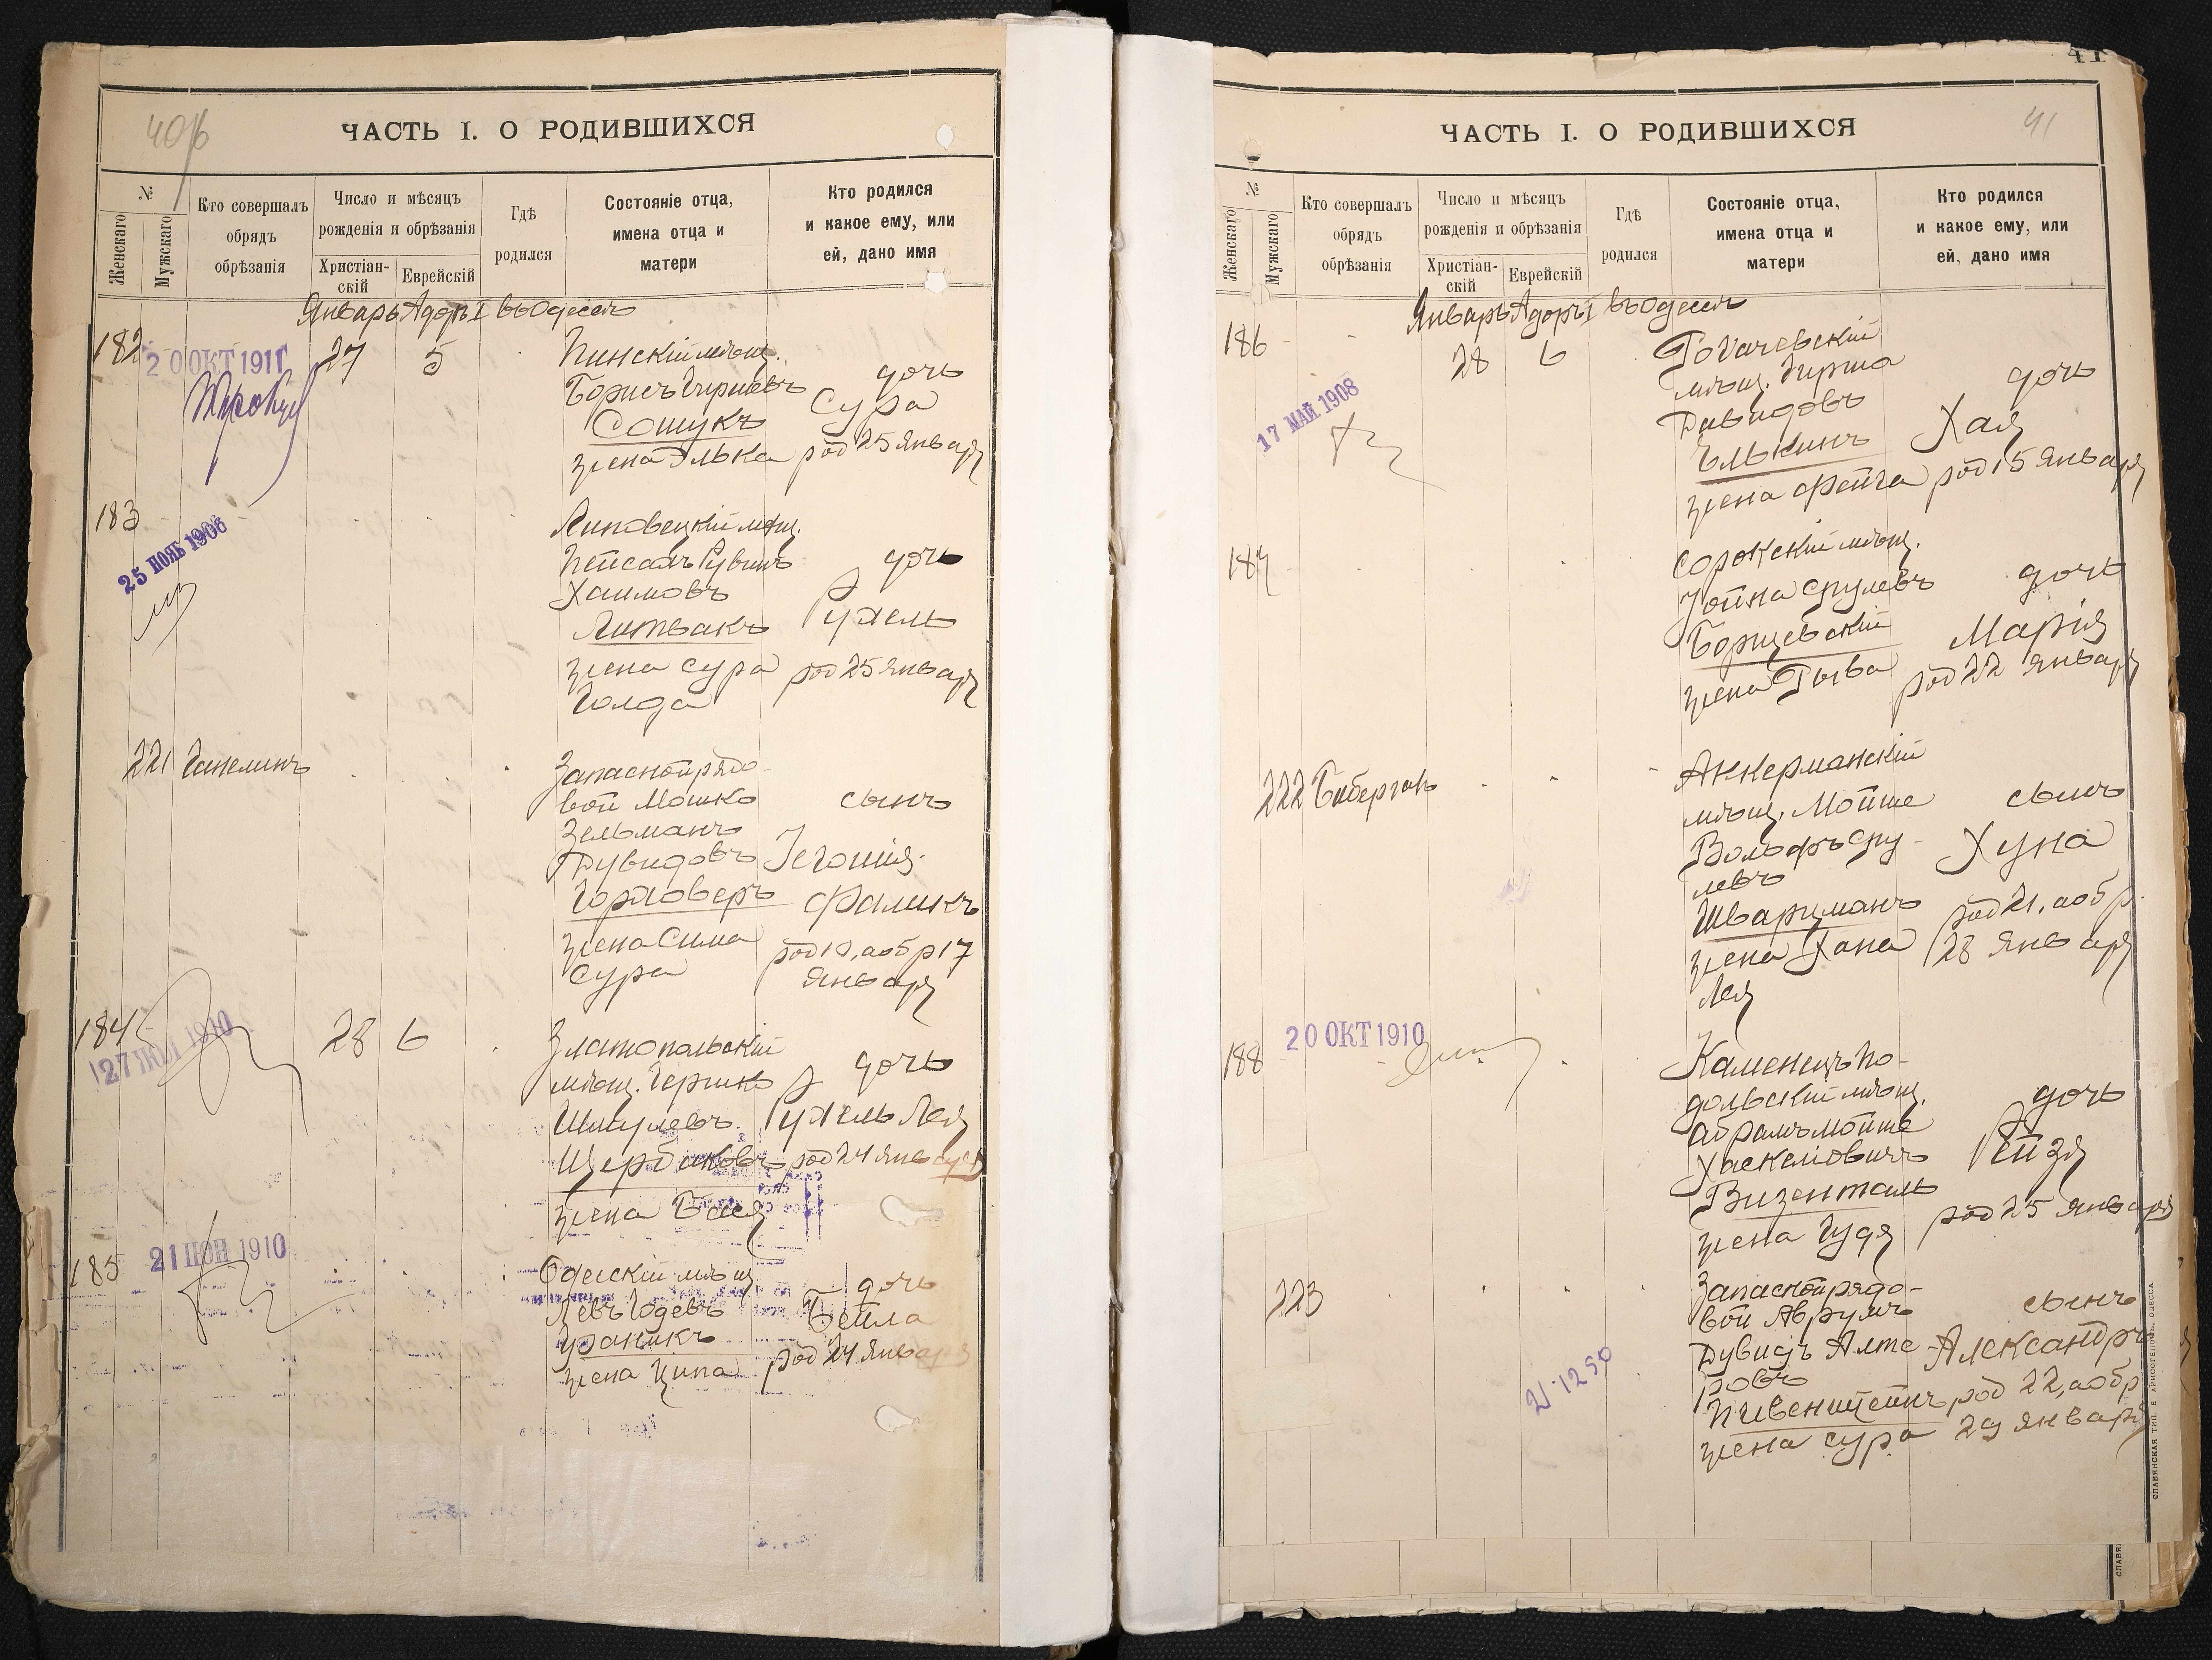 40 об
ЧАСТЬ I. О РОДИВШИХСЯ
№
Женскаго
Мужскаго
Кто совершалъ
обрядъ
обрѣзанія
Число и мѣсяцъ
рожденія и обрѣзанія
Христіан-
скій
Еврейскій
Гдѣ
родился
Состояніе отца,
имена отца и
матери
Кто родился
и какое ему, или
ей, дано имя
Январь Адаръ I въ Одессѣ
182
20 ОКТ 1911
27
5
Пинскій мѣщ.
Борисъ Гиршевъ
Сошукъ
жена Элька
дочь
Сура
род 25 Января
183
25 НОЯБ 1906
Липовецкій мѣщ.
Пейсахъ Рувинъ
Хаимовъ
Литвакъ
жена Сура
Голда
дочь
Рухель
род 25 Января
221
Ганелинъ
Запасной рядо-
вой Мошко
Зельманъ
Дувидовъ
Горловеръ
жена Сима
Сура
сынъ
Іегошія-
Фаликъ
род 10, а обр 17
Января
184
27 1910
28
6
Златопольскій
мѣщ. Гершко
Шмулевъ
Щербаковъ
жена Бася
дочь
Рухель Лея
род 24 Января
185
21 ІЮН 1910
Одесскій мѣщ
Левъ Іодевъ
Ураникъ
жена Ципа
дочь
Бейла
род 24 Января
41
41
ЧАСТЬ I. О РОДИВШИХСЯ
№
Женскаго
Мужскаго
Кто совершалъ
обрядъ
обрѣзанія
Число и мѣсяцъ
рожденія и обрѣзанія
Христіан-
скій
Еврейскій
Гдѣ
родился
Состояніе отца,
имена отца и
матери
Кто родился
и какое ему, или
ей, дано имя
Январь Адаръ I въ Одессѣ
186
17 МАЙ 1908
28
6
Рогачевскій
мѣщ. Гирша
Давидовъ
Элькинъ
жена Фейга
дочь
Хая
род 15 Января
187
Сорокскій мѣщ.
Іойна Срулевъ
Борщевскій
жена Рыва
дочь
Марія
род 22 Января
222
Биберганъ
Аккерманскій
мѣщ. Мойше
Вольфъ Сру-
левъ
Шварцманъ
жена Хана
Лея
сынъ
Хуна
род 21, а обр.
28 Января
188
20 ОКТ 1910
Каменецъ По-
дольскій мѣщ.
Абрамъ Мойше
Хаскеліовичъ
Визенталь
жена Гудя
дочь
Рейзя
род 25 Января
223
21.1250
Запасной рядо-
вой Аврумъ
Дувидъ Алте-
ровъ
Пивенштейнъ
жена Сура
сынъ
Александръ
род 22, а обр
29 Января
СЛАВЯНСКАЯ ТИП. Е. ХРИСОГЕЛОСЪ, ОДЕССА
СЛАВЯ